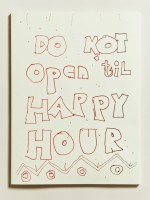 DO NOT
open 'til
HAPPY
HOUR